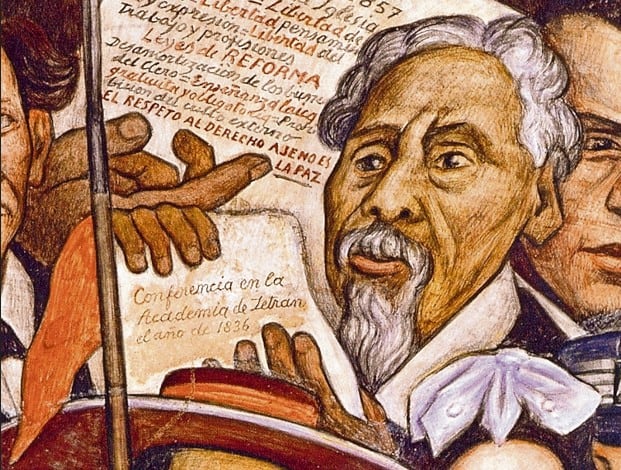 1857
Iglesia
Libertad de
Libertad pensami
y expresión=Libertad del
Trabajo y profesiones
Leyes de REFORMA
Desamortización de los bienes
del Clero=Enseñanza laica
gratuita y obligatoria=Prohi
bición del culto externo
EL RESPETO AL DERECHO AJENO ES
LA PAZ
Conferencia en la
Academia de Letran
el año de 1836